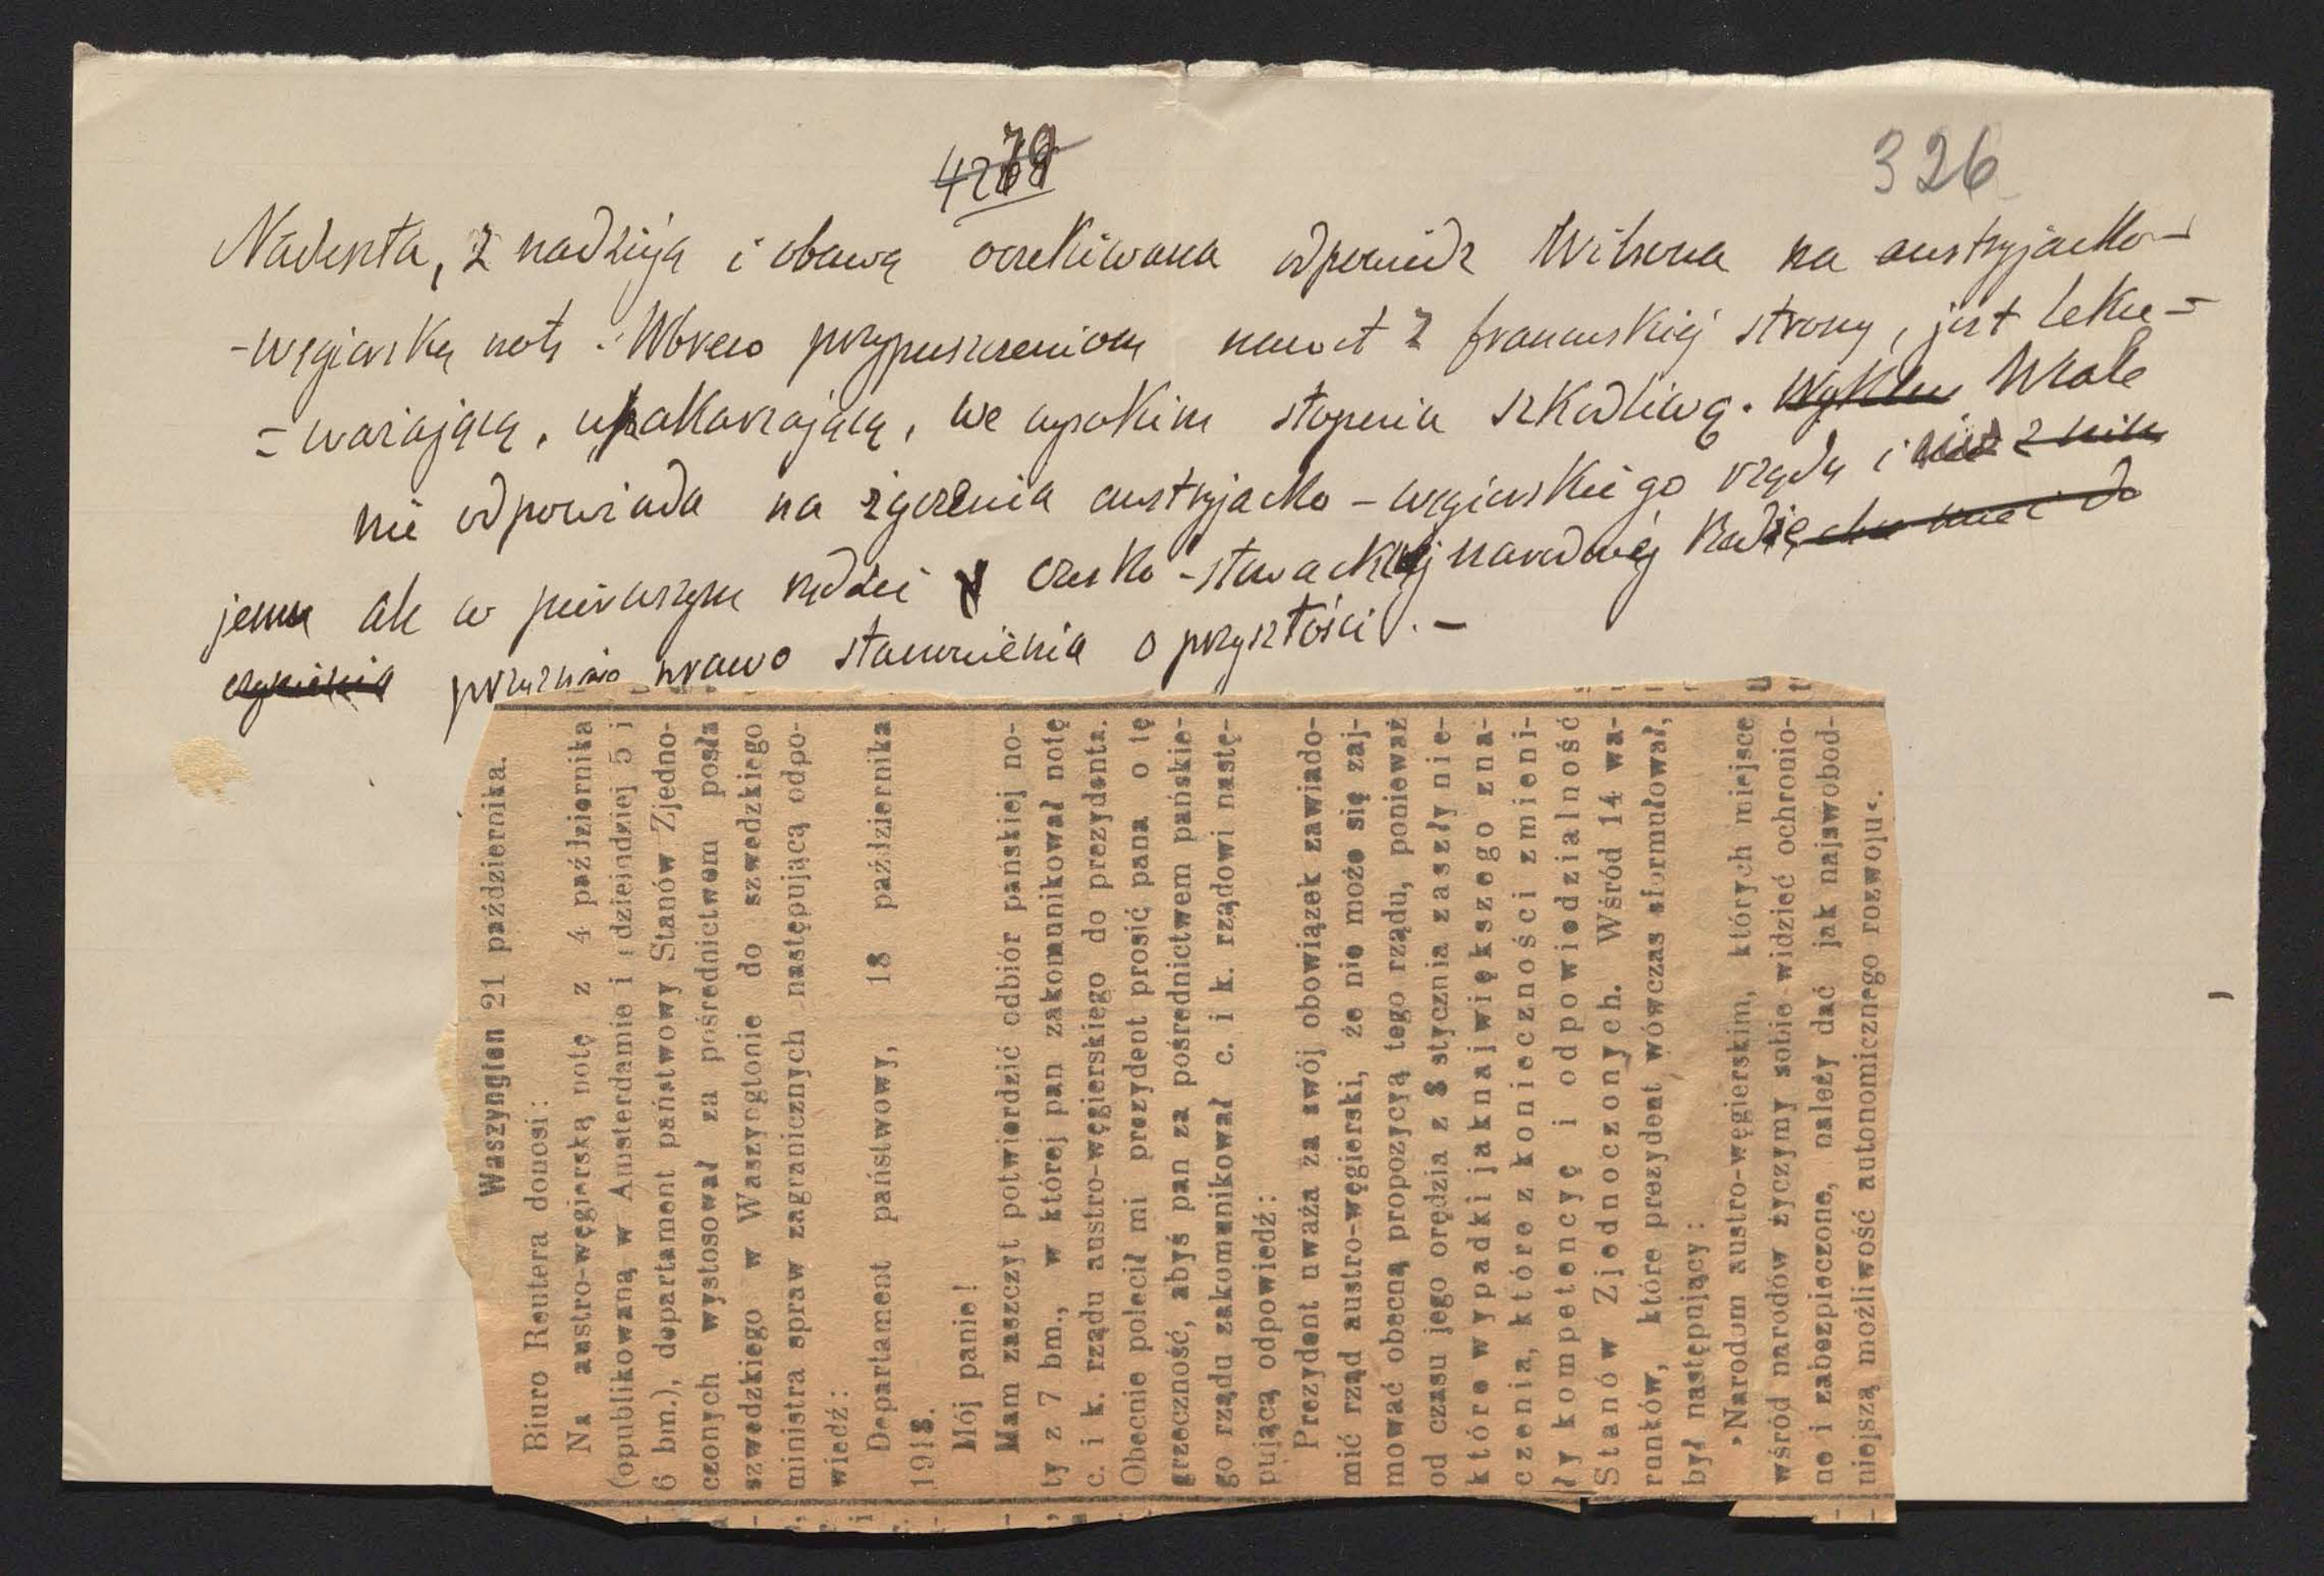 326
Nadeszła, z nadzieją i obawą oczekiwana odpowiedz Wilsona na austryjacko-
-węgierską notę. Wbrew przypuszczeniom nawet z francuskiej strony, jest lekce=
=ważającą, upakarzającą, we wysokim stopniu szkodliwą. Wcale
nie odpowiada na życzenia austryjacko-węgierskiego rządu i nie z nim
jemu ale w pierwszym rzędzie czesko-słowackiej narodowej Radzie
przyznaje prawo stanowienia o przyszłości. -
Waszyngton 21 października.
Biuro Reutera donosi:
Na austro-węgierską notę z 4 października
(opublikowaną w Amsterdamie i dzieindziej 5 i
6 bm.), departament państwowy Stanów Zjedno-
czonych wystosował za pośrednictwem posła
szwedzkiego w Waszyngtonie do szwedzkiego
ministra spraw zagranicznych następującą odpo-
wiedź:
Departament państwowy, 18 października
1918.
Mój panie!
Mam zaszczyt potwierdzić odbiór pańskiej no-
ty z 7 bm., w której pan zakomunikował notę
c. i k. rządu austro-węgierskiego do prezydenta.
Obecnie polecił mi prezydent prosić pana o tę
grzeczność, abyś pan za pośrednictwem pańskie-
go rządu zakomunikował c. i k. rządowi nastę-
pującą odpowiedź:
Prezydent uważa za swój obowiązek zawiado-
mić rząd austro-węgierski, że nie może się zaj-
mować obecną propozycyą tego rządu, ponieważ
od czasu jego orędzia z 8 stycznia zaszły nie-
które wypadki jaknajwiększego zna-
czenia, które z konieczności zmieni-
ły kompetencyę i odpowiedzialność
Stanów Zjednoczonych. Wśród 14 wa-
runków, które prezydent wówczas sformułował,
był następujący:
»Narodom austro-węgierskim, których miejsce
wśród narodów życzymy sobie widzieć ochronio-
ne i zabezpieczone, należy dać jak najswobod-
niejszą możliwość autonomicznego rozwoju«.